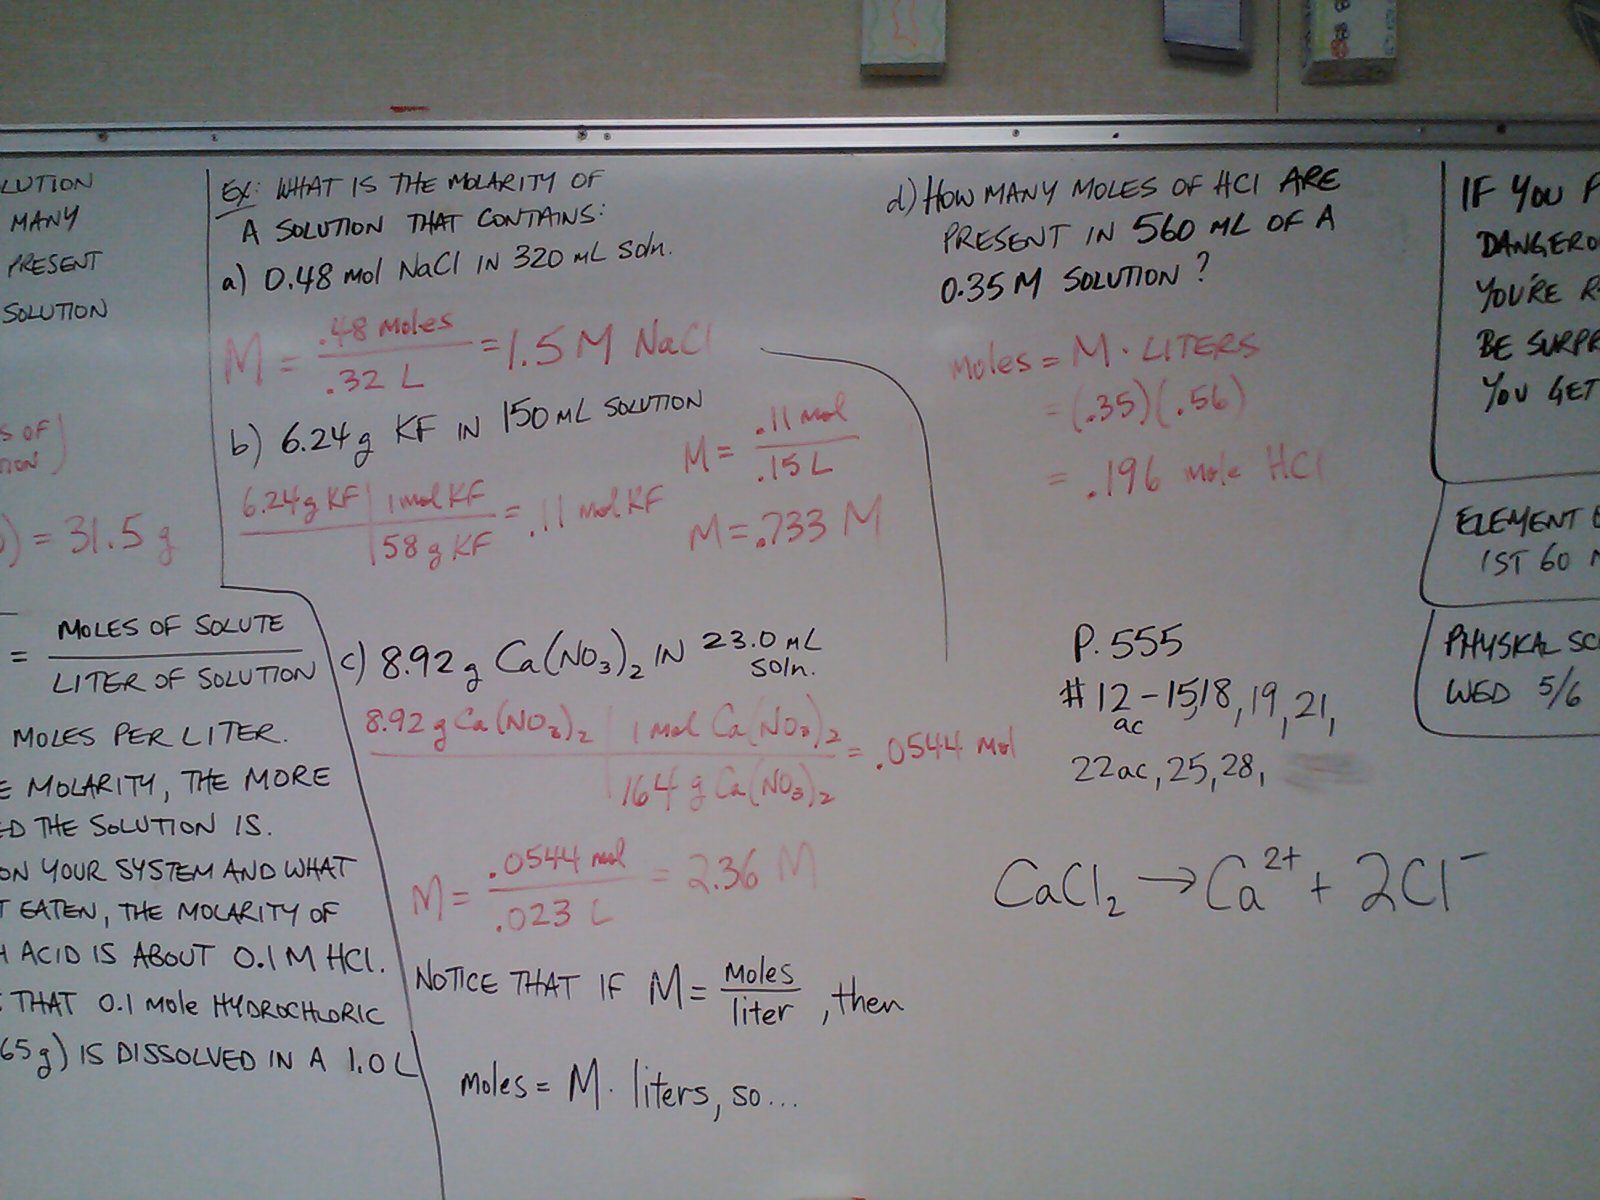 LUTION
MANY
PRESENT
SOLUTION
S OF
) = 31.5 g
= MOLES OF SOLUTE
LITER OF SOLUTION
MOLES PER LITER.
E MOLARITY, THE MORE
ED THE SOLUTION IS.
ON YOUR SYSTEM AND WHAT
T EATEN, THE MOLARITY OF
H ACID IS ABOUT 0.1 M HCl.
THAT 0.1 mole HYDROCHLORIC
65 g) IS DISSOLVED IN A 1.0 L
EX: WHAT IS THE MOLARITY OF
A SOLUTION THAT CONTAINS:
a) 0.48 mol NaCl IN 320 mL soln.
M = .48 moles = 1.5 M NaCl
.32 L
b) 6.24 g KF IN 150 mL SOLUTION
6.24 g KF | 1 mol KF = .11 mol KF
58 g KF
M = .11 mol
.15 L
M = .733 M
c) 8.92 g Ca(NO3)2 IN 23.0 mL
soln.
8.92 g Ca(NO3)2 | 1 mol Ca(NO3)2 = .0544 mol
164 g Ca(NO3)2
M = .0544 mol = 2.36 M
.023 L
NOTICE THAT IF M = moles
liter , then
moles = M · liters, so...
d) HOW MANY MOLES OF HCl ARE
PRESENT IN 560 mL OF A
0.35 M SOLUTION ?
moles = M · LITERS
= (.35)(.56)
= .196 mole HCl
P. 555
# 12 - 15, 18, 19, 21,
ac
22ac, 25, 28,
CaCl2 → Ca2+ + 2Cl-
IF YOU
DANGERO
YOU'RE R
BE SURPR
YOU GET
ELEMENT
1ST 60
PHYSICAL SC
WED 5/6